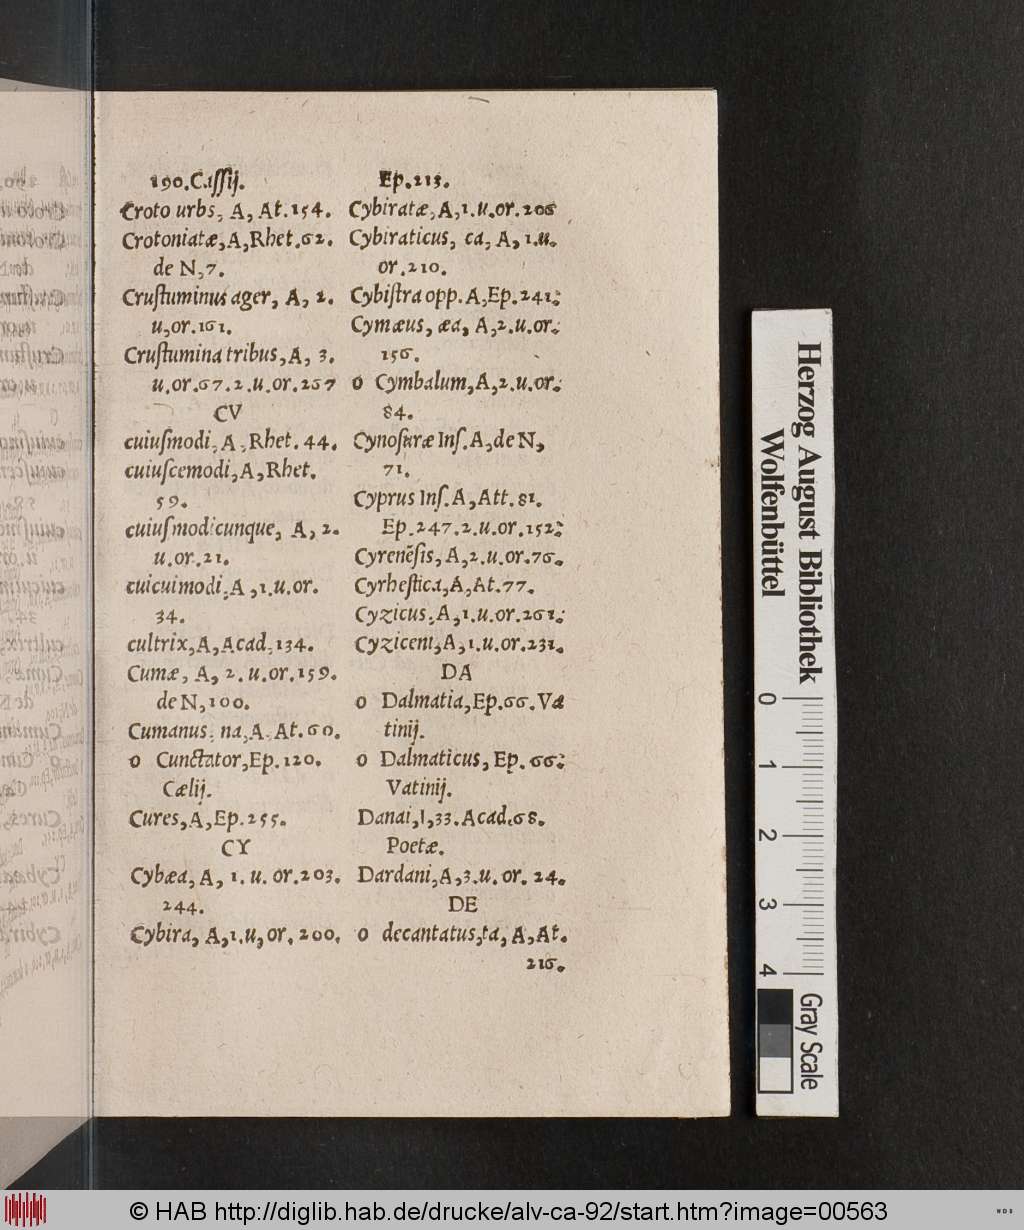 190.Cassij.
Croto urbs, A, At.154.
Crotoniatæ,A,Rhet.62.
de N,7.
Crustuminus ager, A, 2.
u,or.161.
Crustumina tribus,A, 3.
u.or.67.2.u.or.267
CV
cuiusmodi,A,Rhet.44.
cuiuscemodi,A,Rhet.
59.
cuiusmodicunque, A, 2.
u.or.21.
cuicuimodi,A,1.u.or.
34.
cultrix,A,Acad.134.
Cumæ, A, 2. u.or.159.
de N,100.
Cumanus, na,A, At.60.
o Cunctator,Ep.120.
Cælij.
Cures,A,Ep.255.
CY
Cybæa, A, 1. u. or.203.
244.
Cybira, A,1.u,or.200.
Ep.213.
Cybiratæ,A,1.u.or.206
Cybiraticus, ca, A, 1.u.
or.210.
Cybistra opp.A,Ep.241.
Cymæus, æa, A,2.u.or.
156.
o Cymbalum,A,2.u.or.
84.
Cynosuræ Ins.A,de N,
71.
Cyprus Ins.A,Att.81.
Ep.247.2.u.or.152.
Cyrenẽsis,A,2.u.or.76.
Cyrhestica,A,At.77.
Cyzicus,A,1.u.or.261.
Cyziceni,A,1.u.or.231.
DA
o Dalmatia,Ep.66.Va
tinij.
o Dalmaticus, Ep.66.
Vatinij.
Danai,1,33.Acad.68.
Poetæ.
Dardani,A,3.u. or. 24.
DE
o decantatus,ta, A,At.
216.
Herzog August Bibliothek
Wolfenbüttel
0 1 2 3 4
Gray Scale
© HAB http://diglib.hab.de/drucke/alv-ca-92/start.htm?image=00563
WDB